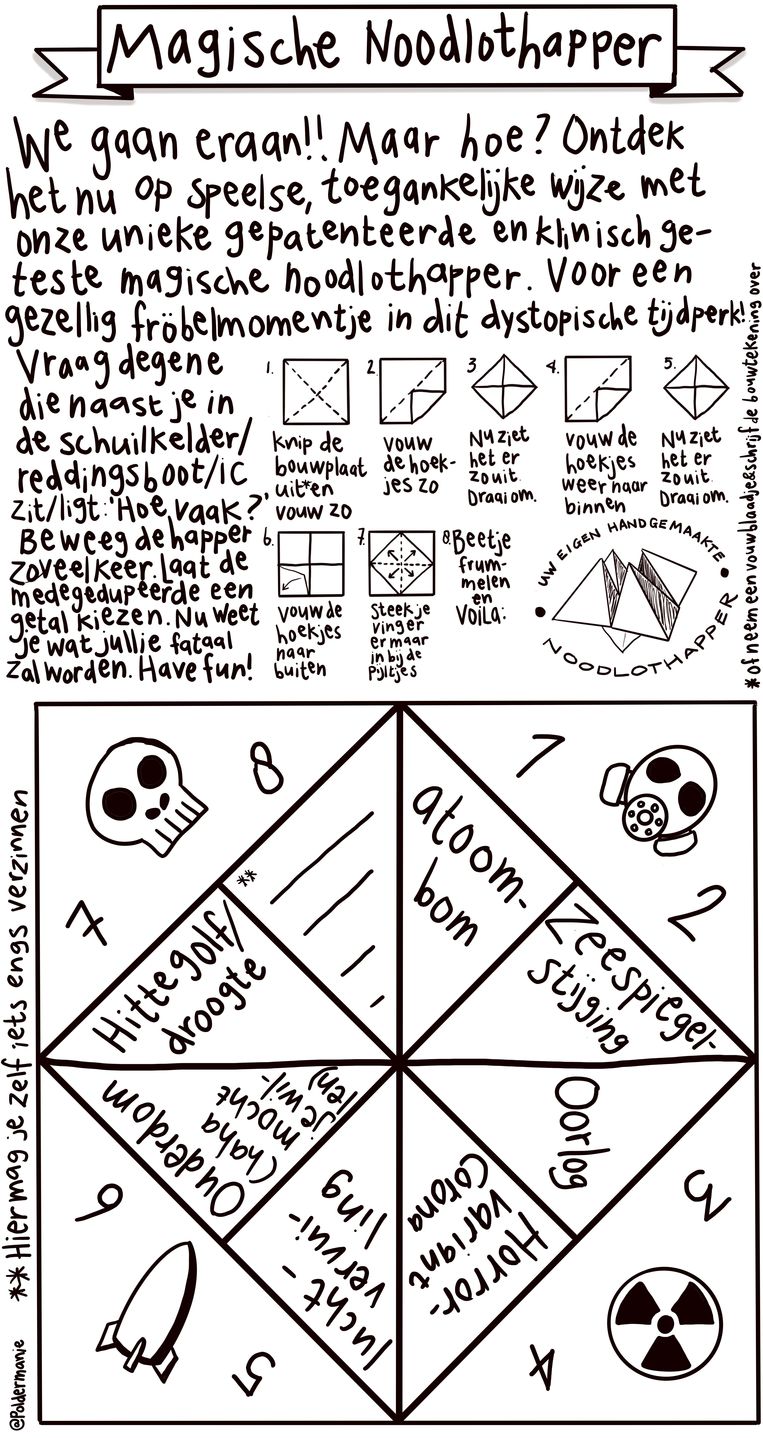 Magische Noodlothapper
We gaan eraan!! Maar hoe? Ontdek
het nu op speelse, toegankelijke wijze met
onze unieke gepatenteerde en klinisch ge-
teste magische noodlothapper. Voor een
gezellig fröbelmomentje in dit dystopische tijdperk!
Vraag degene
die naast je in
de schuilkelder/
reddingsboot/ic
zit/ligt: 'Hoe vaak?'
Beweeg de happer
zoveel keer. Laat de
medegedupeerde een
getal kiezen. Nu weet
je wat jullie fataal
zal worden. Have fun!
1.
Knip de
bouwplaat
uit*en
vouw zo
2.
vouw
de hoek-
jes zo
3.
Nu ziet
het er
zo uit.
Draai om.
4.
vouw de
hoekjes
weer naar
binnen
5.
Nu ziet
het er
zo uit.
Draai om.
6.
vouw de
hoekjes
naar
buiten
7.
Steek je
vinger
er maar
in bij de
pijltjes
8. Beetje
frum-
melen
en
voila:
UW EIGEN HANDGEMAAKTE
NOODLOTHAPPER
*of neem een vouwblaadje & schrijf de bouwtekening over
8
7
1
2
**
atoom-
bom
Zeespiegel-
stijging
Hittegolf/
droogte
Ouderdom
(haha
mocht
je wil-
len)
Oorlog
lucht-
vervui-
ling
Horror-
variant
Corona
6
5
3
4
** Hier mag je zelf iets engs verzinnen
@Poldermanje